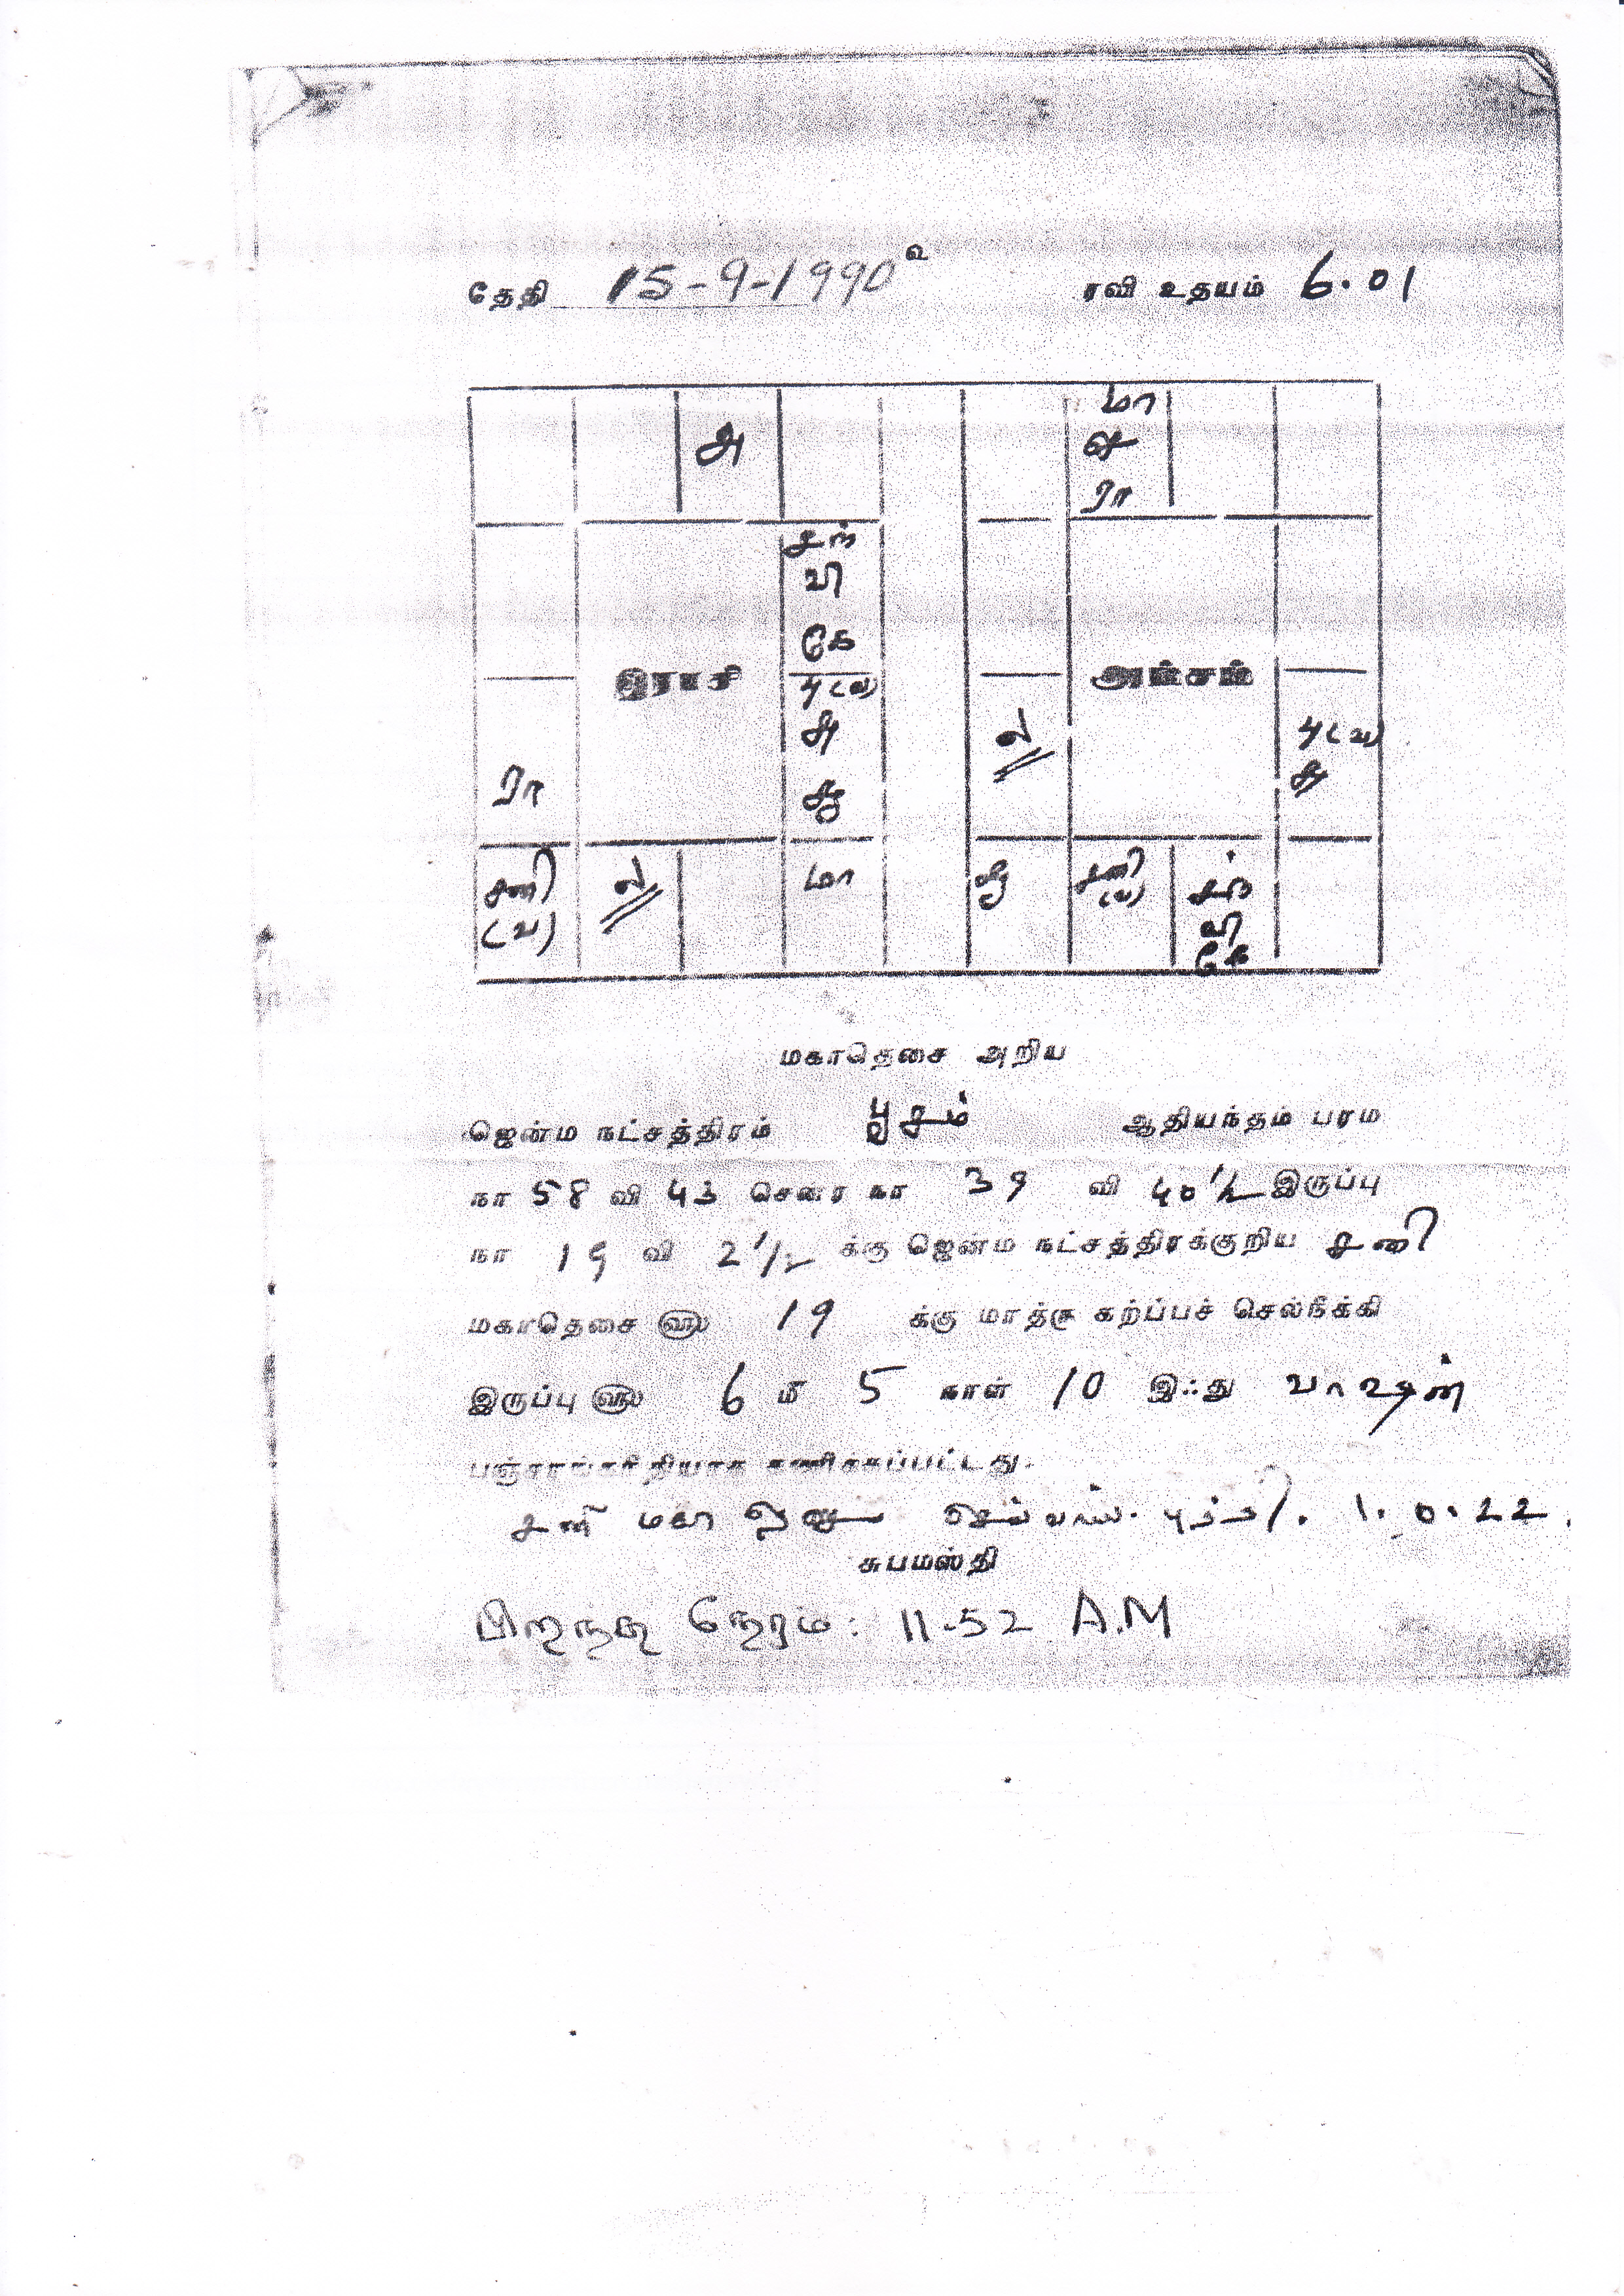 தேதி 15-9-1990 உ ரவி உதயம் 6.01
அ
சந்
வி
கே
இராசி
பு (வ)
சு
சு
ரா
சனி
(வ)
ல
மா
மா
ரா
அம்சம்
ல
பு (வ)
சனி
(வ)
சந்
வி
கே
மகாதெசை அறிய
ஜென்ம நட்சத்திரம் பூசம் ஆதியந்தம் பரம
நா 58 வி 43 சென்ற நா 39 வி 40 1/2 இருப்பு
நா 19 வி 2 1/2 க்கு ஜென்ம நட்சத்திரக்குறிய சனி
மகாதெசை ௵ 19 க்கு மாத்ரு கற்ப்பச் செல்நீக்கி
இருப்பு ௵ 6 மீ 5 நாள் 10 இஃது வாஷன்
பஞ்சாங்கரீதியாக கணிக்கப்பட்டது.
சனி மகா செவ்வாய். புத்தி. 1. 0. 22.
சுபமஸ்தி
பிறந்த நேரம்: 11-52 A.M